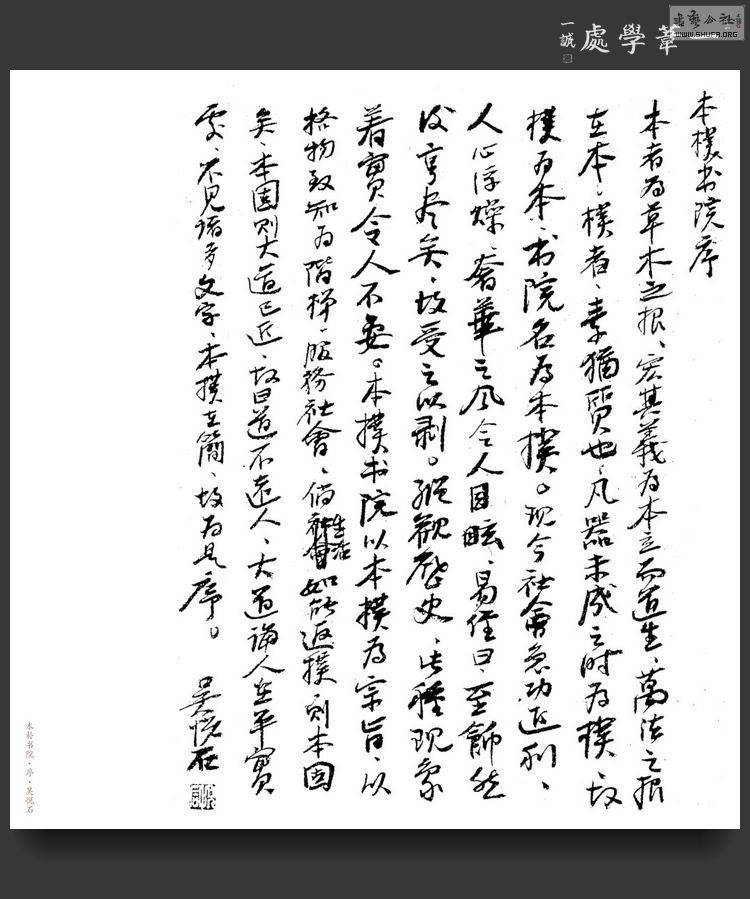 書藝公社
WWW.SHUFA.ORG
葦學處
一誠
本樸书院序
本者为草木之根、宏其義为本立而道生、萬法之根
在本、樸者、素猶質也、凡器未成之时为樸、故
樸为本、书院名为本樸。现今社會急功近利、
人心浮燥、奢華之风令人目眩、易经曰、至飾然
後亨尽矣、故受之以剥。縱觀歷史、此種现象
着實令人不安。本樸书院以本樸为宗旨、以
格物致知为階梯、服務社會、倘社會生活如能返樸、则本固
矣、本固则大道已近、故曰道不遠人、大道诲人在平實
處、不见诸多文字、本樸在簡、故为是序。
吴悦石
本朴书院·序·吴悦石